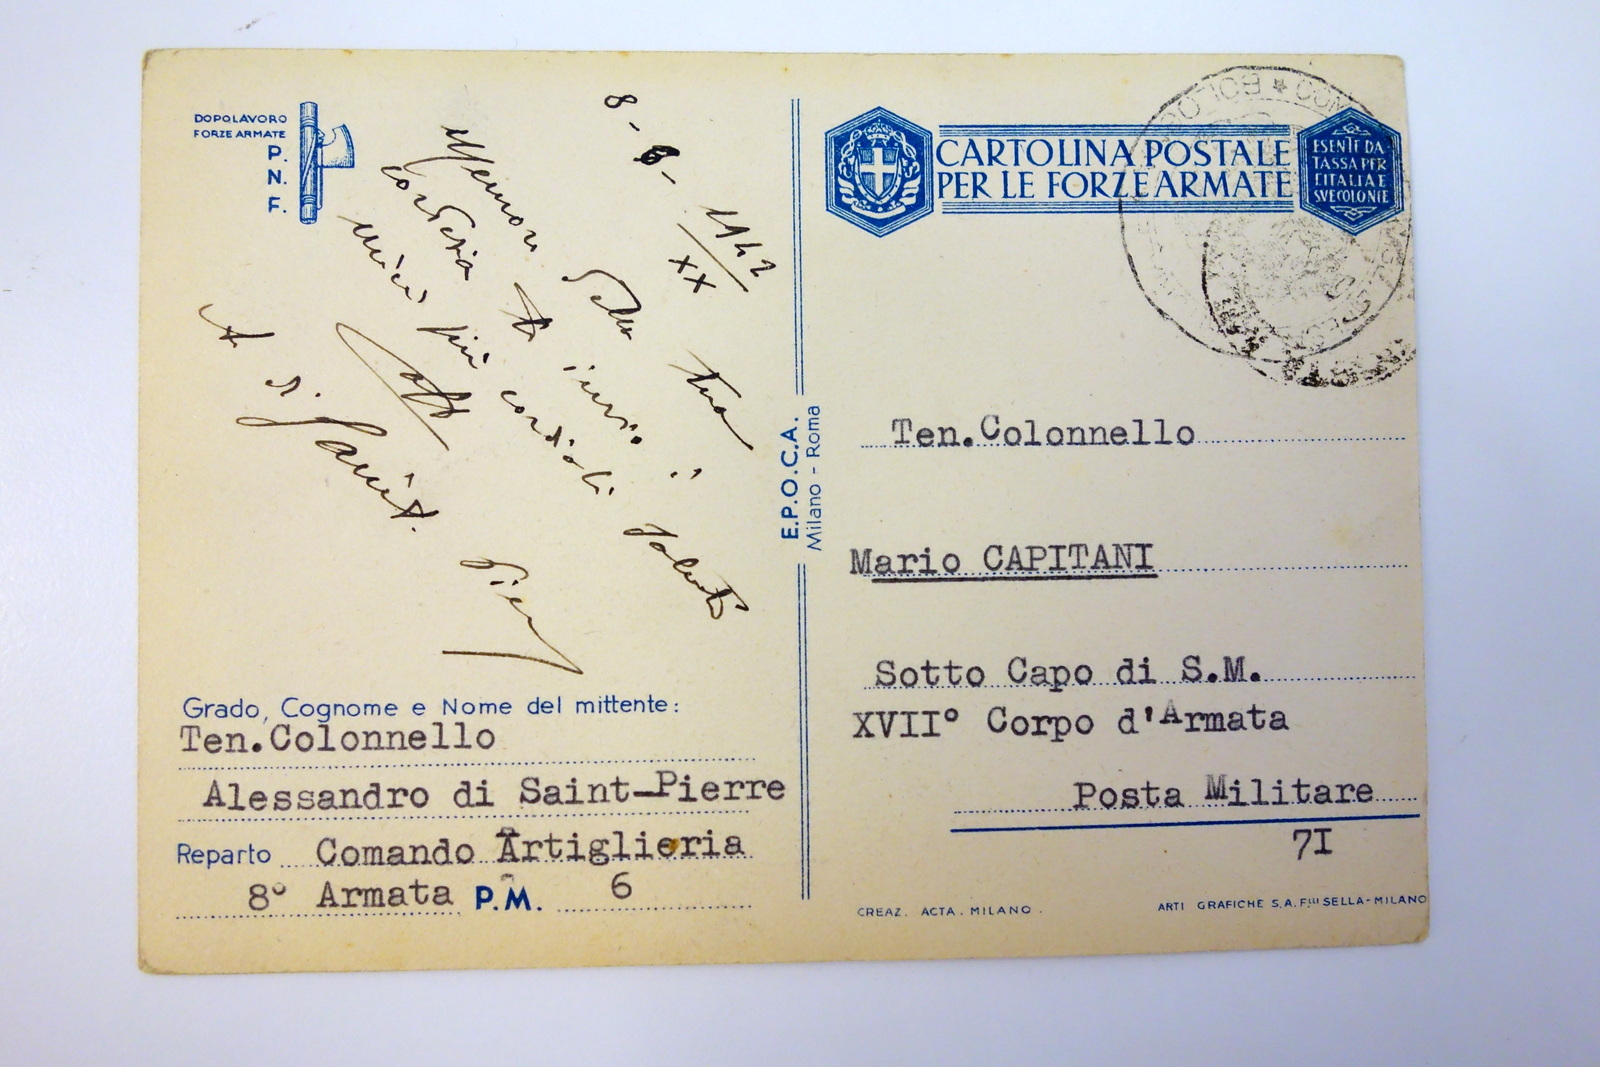 DOPOLAVORO
FORZE ARMATE
P.
N.
F.
8-6-1942
XX
Memore della tua
cordesia ti invio i
miei più cordiali saluti
A. di Saint
Pier
Grado, Cognome e Nome del mittente:
Ten.Colonnello
Alessandro di Saint-Pierre
Reparto Comando Artiglieria
8° Armata P.M. 6
E.P.O.C.A.
Milano - Roma
CARTOLINA POSTALE
PER LE FORZE ARMATE
ESENTE DA
TASSA PER
L'ITALIA E
SVE COLONIE
Ten.Colonnello
Mario CAPITANI
Sotto Capo di S.M.
XVII° Corpo d'Armata
Posta Militare
7I
CREAZ. ACTA. MILANO.
ARTI GRAFICHE S.A. F.lli SELLA-MILANO